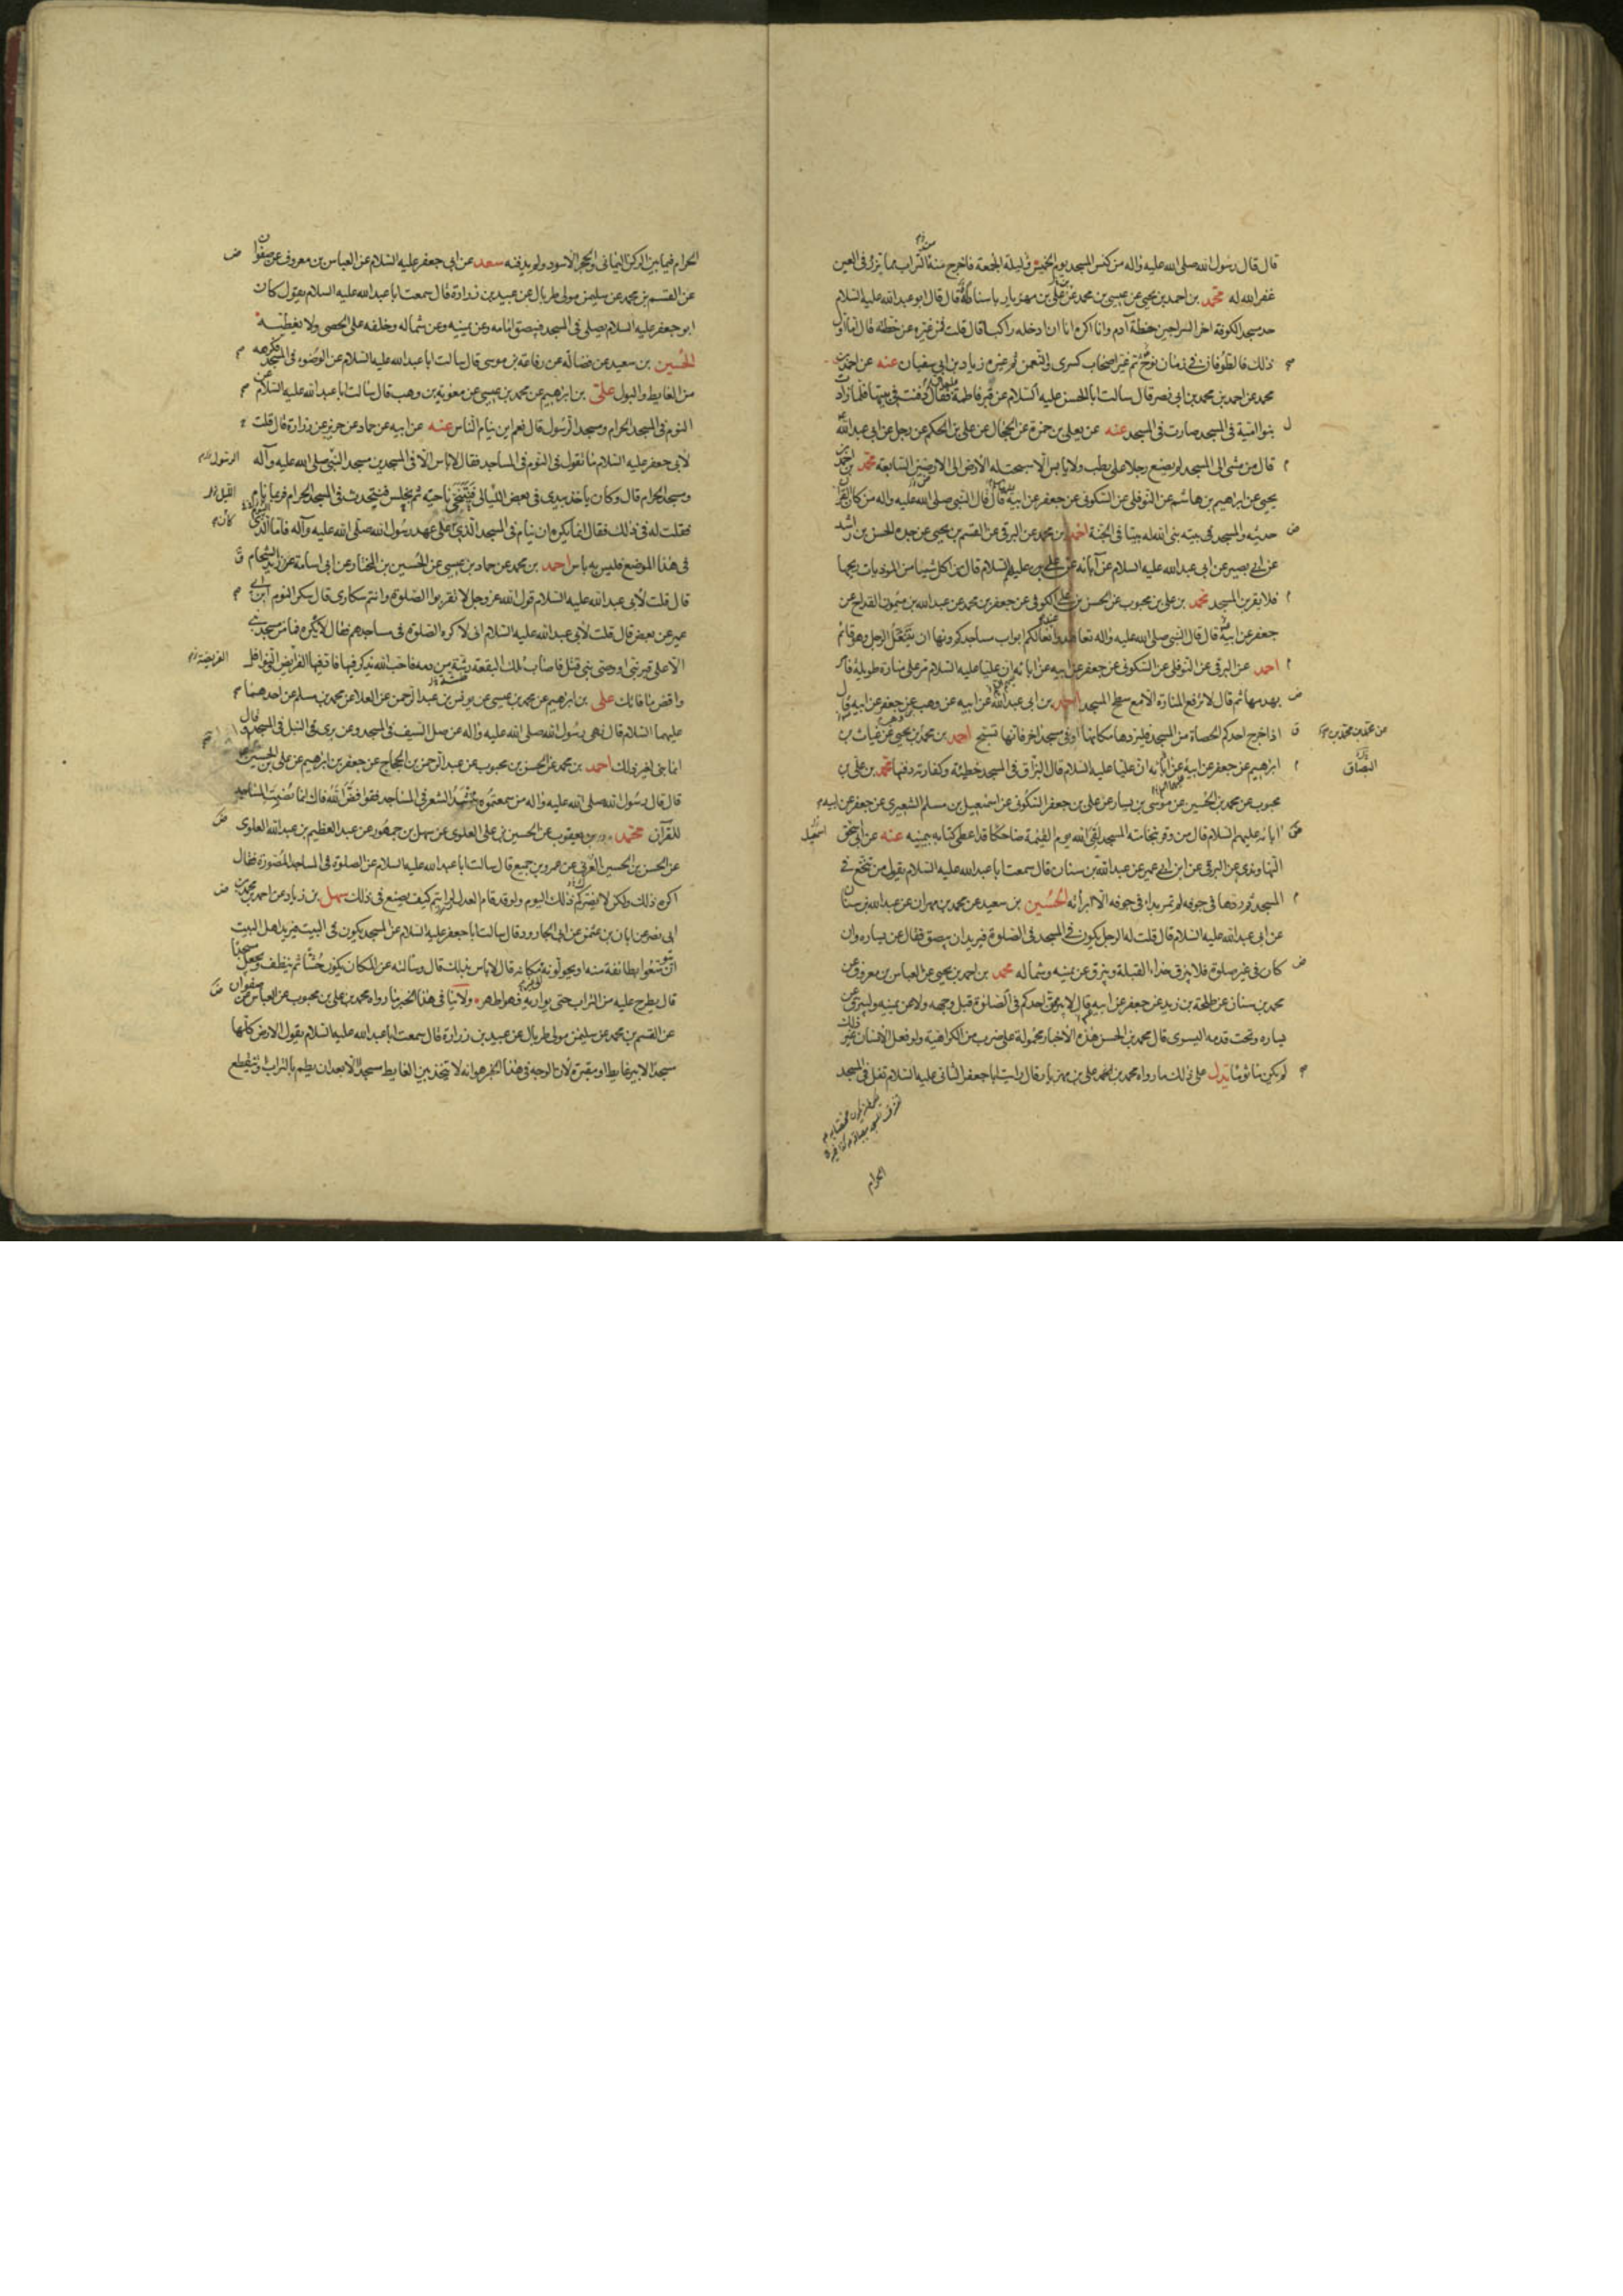 قال قال رسول الله صلى الله عليه واله من كنس المسجد يوم الخميس وليلة الجمعة فاخرج منه التراب ما يذر في العين
غفر الله له محمد بن احمد بن يحيى عن عيسى بن محمد عن على بن مهزيار باسناد له قال قال ابو عبد الله عليه السلام
حد مسجد الكوفة اخر السراجين خطه آدم وانا اكره ان ادخله راكبا قال قلت فمن غيره عن خطته قال اما اول
ذلك فالطوفان في زمان نوح ثم غير اصحاب كسرى والنعمن ثم غيره زياد بن ابى سفيان عنه عن احمد بن
محمد عن احمد بن محمد بن ابى نصر قال سالت ابا الحسن عليه السلام عن قبر فاطمة فقال دفنت في بيتها فلما زادت
بنو امية في المسجد صارت في المسجد عنه عن يعلى بن حمزة عن الحجال عن على بن الحكم عن رجل عن ابى عبد الله
قال من مشى الى المسجد لم يضع رجلا على رطب ولا يابس الا سبحت له الارض الى الارضين السابعة محمد بن احمد بن
يحيى عن ابراهيم بن هاشم عن النوفلى عن السكونى عن جعفر عن ابيه قال قال النبى صلى الله عليه واله من كان القران
حديثه والمسجد في بيته بنى الله له بيتا في الجنة احمد بن محمد عن البرقى عن القسم بن يحيى عن جده الحسن بن راشد
عن ابى بصير عن ابى عبد الله عليه السلام عن آبائه عن على عليهم السلام قال من اكل شيئا من الموذيات ريحها
فلا يقربن المسجد محمد بن على بن محبوب عن الحسن بن على الكوفى عن جعفر بن محمد عن عبد الله بن ميمون القداح عن
جعفر عن ابيه قال قال النبى صلى الله عليه واله تعاهدوا نعالكم عند ابواب مساجدكم ونها ان يتنعل الرجل وهو قائم
احمد عن البرقى عن النوفلى عن السكونى عن جعفر عن ابيه عن ابائه ان عليا عليه السلام مر على منارة طويلة فامر
بهدمها ثم قال لا ترفع المنارة الا مع سطح المسجد احمد بن ابى عبد الله عن ابيه عن وهب عن جعفر عن ابيه قال
اذا خرج احدكم الحصاة من المسجد فليردها مكانها او في مسجد اخر فانها تسبح احمد بن محمد بن يحيى عن غياث بن
ابراهيم عن جعفر عن ابيه عن ابائه ان عليا عليه السلام قال البزاق في المسجد خطيئة وكفارته دفنها محمد بن على بن
البصاق
محبوب عن محمد بن الحسين عن موسى بن يسار عن على بن جعفر السكونى عن اسمعيل بن مسلم الشعيرى عن جعفر عن ابيه
ابائه عليهم السلام قال من وقر بنخامته المسجد لقى الله يوم القيمة ضاحكا قد اعطى كتابه بيمينه عنه عن ابى اسحق
النهاوندى عن البرقى عن ابن ابى عمير عن عبد الله بن سنان قال سمعت ابا عبد الله عليه السلام يقول من تنخع في
المسجد ثم ردها في جوفه لم تمر بداء في جوفه الا ابرأته الحسين بن سعيد عن محمد بن مهران عن عبد الله بن سنان
عن ابى عبد الله عليه السلام قال قلت له الرجل يكون في المسجد في الصلوة فيريد ان يبصق فقال عن يساره وان
كان في غير صلوة فلا يبزق حذاء القبلة ويبزق عن يمينه وشماله محمد بن احمد بن يحيى عن العباس بن معروف عن
محمد بن سنان عن طلحة بن زيد عن جعفر عن ابيه قال لا يبزقن احدكم في الصلوة قبل وجهه ولا عن يمينه وليبزق عن
يساره وتحت قدمه اليسرى قال محمد بن الحسن هذه الاخبار محمولة على ضرب من الكراهية ولو فعل الانسان غير ذلك
لم يكن ماثوما يدل على ذلك ما رواه محمد بن على بن مهزيار قال رايت ابا جعفر الثانى عليه السلام تفل في المسجد
الحرام
الحرام فيما بين الركن اليمانى والحجر الاسود ولم يدفنه سعد عن ابى جعفر عليه السلام عن العباس بن معروف عن صفوان
عن القسم بن محمد عن سليمن مولى طربال عن عبيد بن زرارة قال سمعت ابا عبد الله عليه السلام يقول كان
ابو جعفر عليه السلام يصلى في المسجد فيبصق امامه وعن يمينه وعن شماله وخلفه على الحصى ولا يغطيه
الحسين بن سعيد عن فضالة عن رفاعة بن موسى قال سالت ابا عبد الله عليه السلام عن الوضوء في المسجد فكرهه
من الغايط والبول على بن ابراهيم عن محمد بن عيسى عن معوية بن وهب قال سالت ابا عبد الله عليه السلام عن
النوم في المسجد الحرام ومسجد الرسول قال نعم اين ينام الناس عنه عن ابيه عن حماد عن حريز عن زرارة قال قلت
لابى جعفر عليه السلام ما تقول في النوم في المساجد فقال لا باس الا في المسجدين مسجد النبى صلى الله عليه وآله
ومسجد الحرام قال وكان ياخذ بيدى في بعض الليالى فيتنحى ناحية ثم يجلس فيتحدث في المسجد الحرام فربما نام
فقلت له في ذلك فقال انما يكره ان ينام في المسجد الذى على عهد رسول الله صلى الله عليه وآله فاما الذى
في هذا الموضع فليس به باس احمد بن محمد عن حماد بن عيسى عن الحسين بن المختار عن ابى اسامة عن زيد الشحام
قال قلت لابى عبد الله عليه السلام قول الله عز وجل لا تقربوا الصلوة وانتم سكارى قال سكر النوم ابن ابى
عمير عن بعض قال قلت لابى عبد الله عليه السلام انى لاكره الصلوة في مساجدهم فقال لا تكره فما من مسجد بنى
الا على قبر نبى او وصى نبى قتل فاصاب تلك البقعة رشة من دمه فاحب الله ان يذكر فيها فاد فيها الفرايض النوافل
واقض ما فاتك على بن ابراهيم عن محمد بن عيسى عن يونس بن عبد الرحمن عن العلا عن محمد بن مسلم عن احدهما
عليهما السلام قال نهى رسول الله صلى الله عليه واله عن سل السيف في المسجد وعن برى النبل في المسجد قال
انما بنى لغير ذلك احمد بن محمد عن الحسن بن محبوب عن عبد الرحمن بن الحجاج عن جعفر بن ابراهيم عن على بن الحسين
قال قال رسول الله صلى الله عليه واله من سمعتموه ينشد الشعر في المساجد فقولوا فض الله فاك انما نصبت المساجد
للقرآن محمد بن يعقوب عن الحسين بن على العلوى عن سهل بن جمهور عن عبد العظيم بن عبد الله العلوى
عن الحسن بن الحسين العرنى عن عمرو بن جميع قال سالت ابا عبد الله عليه السلام عن الصلوة في المساجد المصورة فقال
اكره ذلك ولكن لا يضركم ذلك اليوم ولو قد قام العدل لرايتم كيف يصنع في ذلك سهل بن زياد عن احمد بن محمد بن
ابى نصر عن ابان بن عثمن عن ابى الجارود قال سالت ابا جعفر عليه السلام عن المسجد يكون في البيت فيريد اهل البيت
ان يتوسعوا بطائفة منه او يحولونه عن مكانه قال لا باس بذلك قال وسالته عن المكان يكون حشا ثم ينظف ويجعل مسجدا
قال يطرح عليه من التراب حتى يواريه فهو اطهر ولا ينافى هذا الخبر ما رواه محمد بن على بن محبوب عن العباس عن صفوان
عن القسم بن محمد عن سليمن مولى طربال عن عبيد بن زرارة قال سمعت ابا عبد الله عليه السلام يقول الارض كلها
مسجد الا بير غايط او مقبرة لان الوجه في هذا الخبر هو انه لا يتخذ بين الغايط مسجد الا بعد ان يطم بالتراب وينقطع